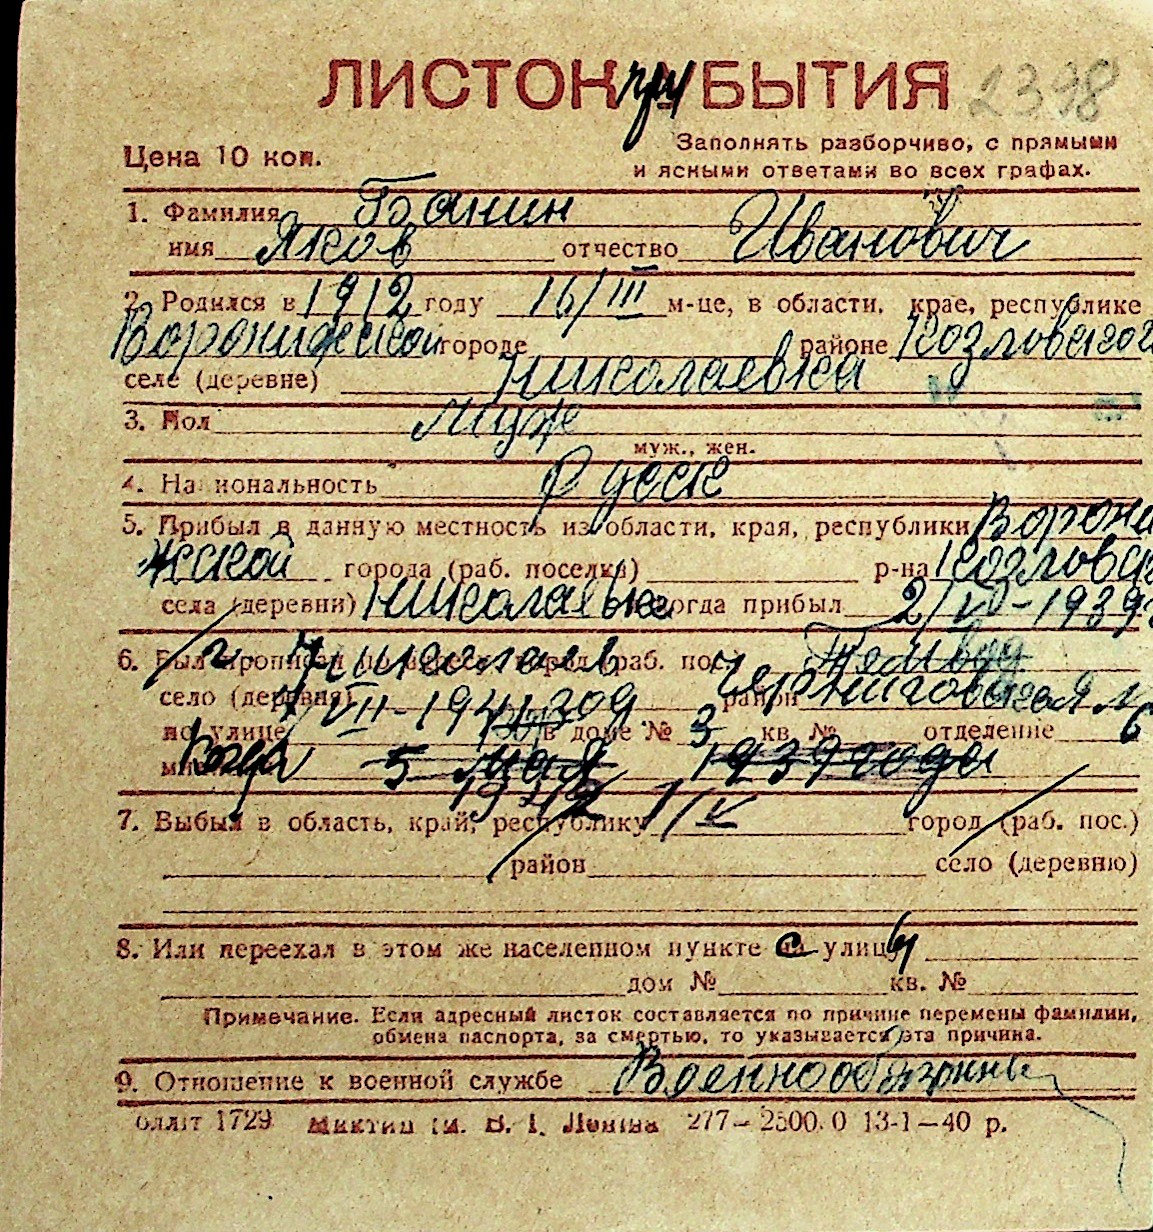 ЛИСТОК при УБЫТИЯ 2398
Цена 10 коп.
Заполнять разборчиво, с прямыми
и ясными ответами во всех графах.
1. Фамилия Банин
имя Яков отчество Иванович
2. Родился в 1912 году 16/III м-це, в области, крае, республике
Воронижской городе районе Козловского
селе (деревне) Николаевка
3. Пол муж
муж., жен.
4. Национальность Русск
5. Прибыл в данную местность из области, края, республики Ворони
жской города (раб. поселка) р-на Козловск
села (деревни) Николаевка когда прибыл 2/VI-1939г
6. Был прописан по адресу: город (раб. пос.)
г. Николаев
село (деревня) район Черниговская
VII-1941 год
по улице в доме № 3 кв. № отделение 6
Когда 5 мая 1939 года
1942 1/V
7. Выбыл в область, край, республику город (раб. пос.)
район село (деревню)
8. Или переехал в этом же населенном пункте с улицы
дом № кв. №
Примечание. Если адресный листок составляется по причине перемены фамилии,
обмена паспорта, за смертью, то указывается эта причина.
9. Отношение к военной службе Военнообязаный
1729 В. І. Леніна 277—2500.0 13-1—40 р.